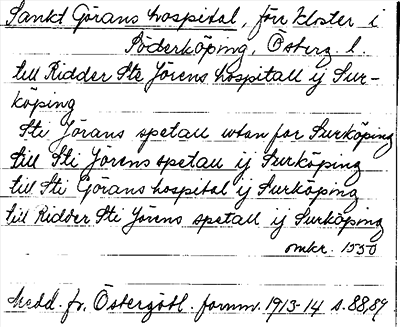 Sankt Görans hospital, förr kloster i
Söderköping, Österg. l.
till Ridder Ste Jörens hospitall ij Sur-
köping
Sti Jörans spetall utan for Surköping
till Sti Jörens spetall ij Surköping
till Sti Görans hospital ij Surköping
till Ridder Sti Jörens spetall ij Surköping
omkr. 1550
Medd. fr. Östergötl. fornm. 1913-14 s. 88,89